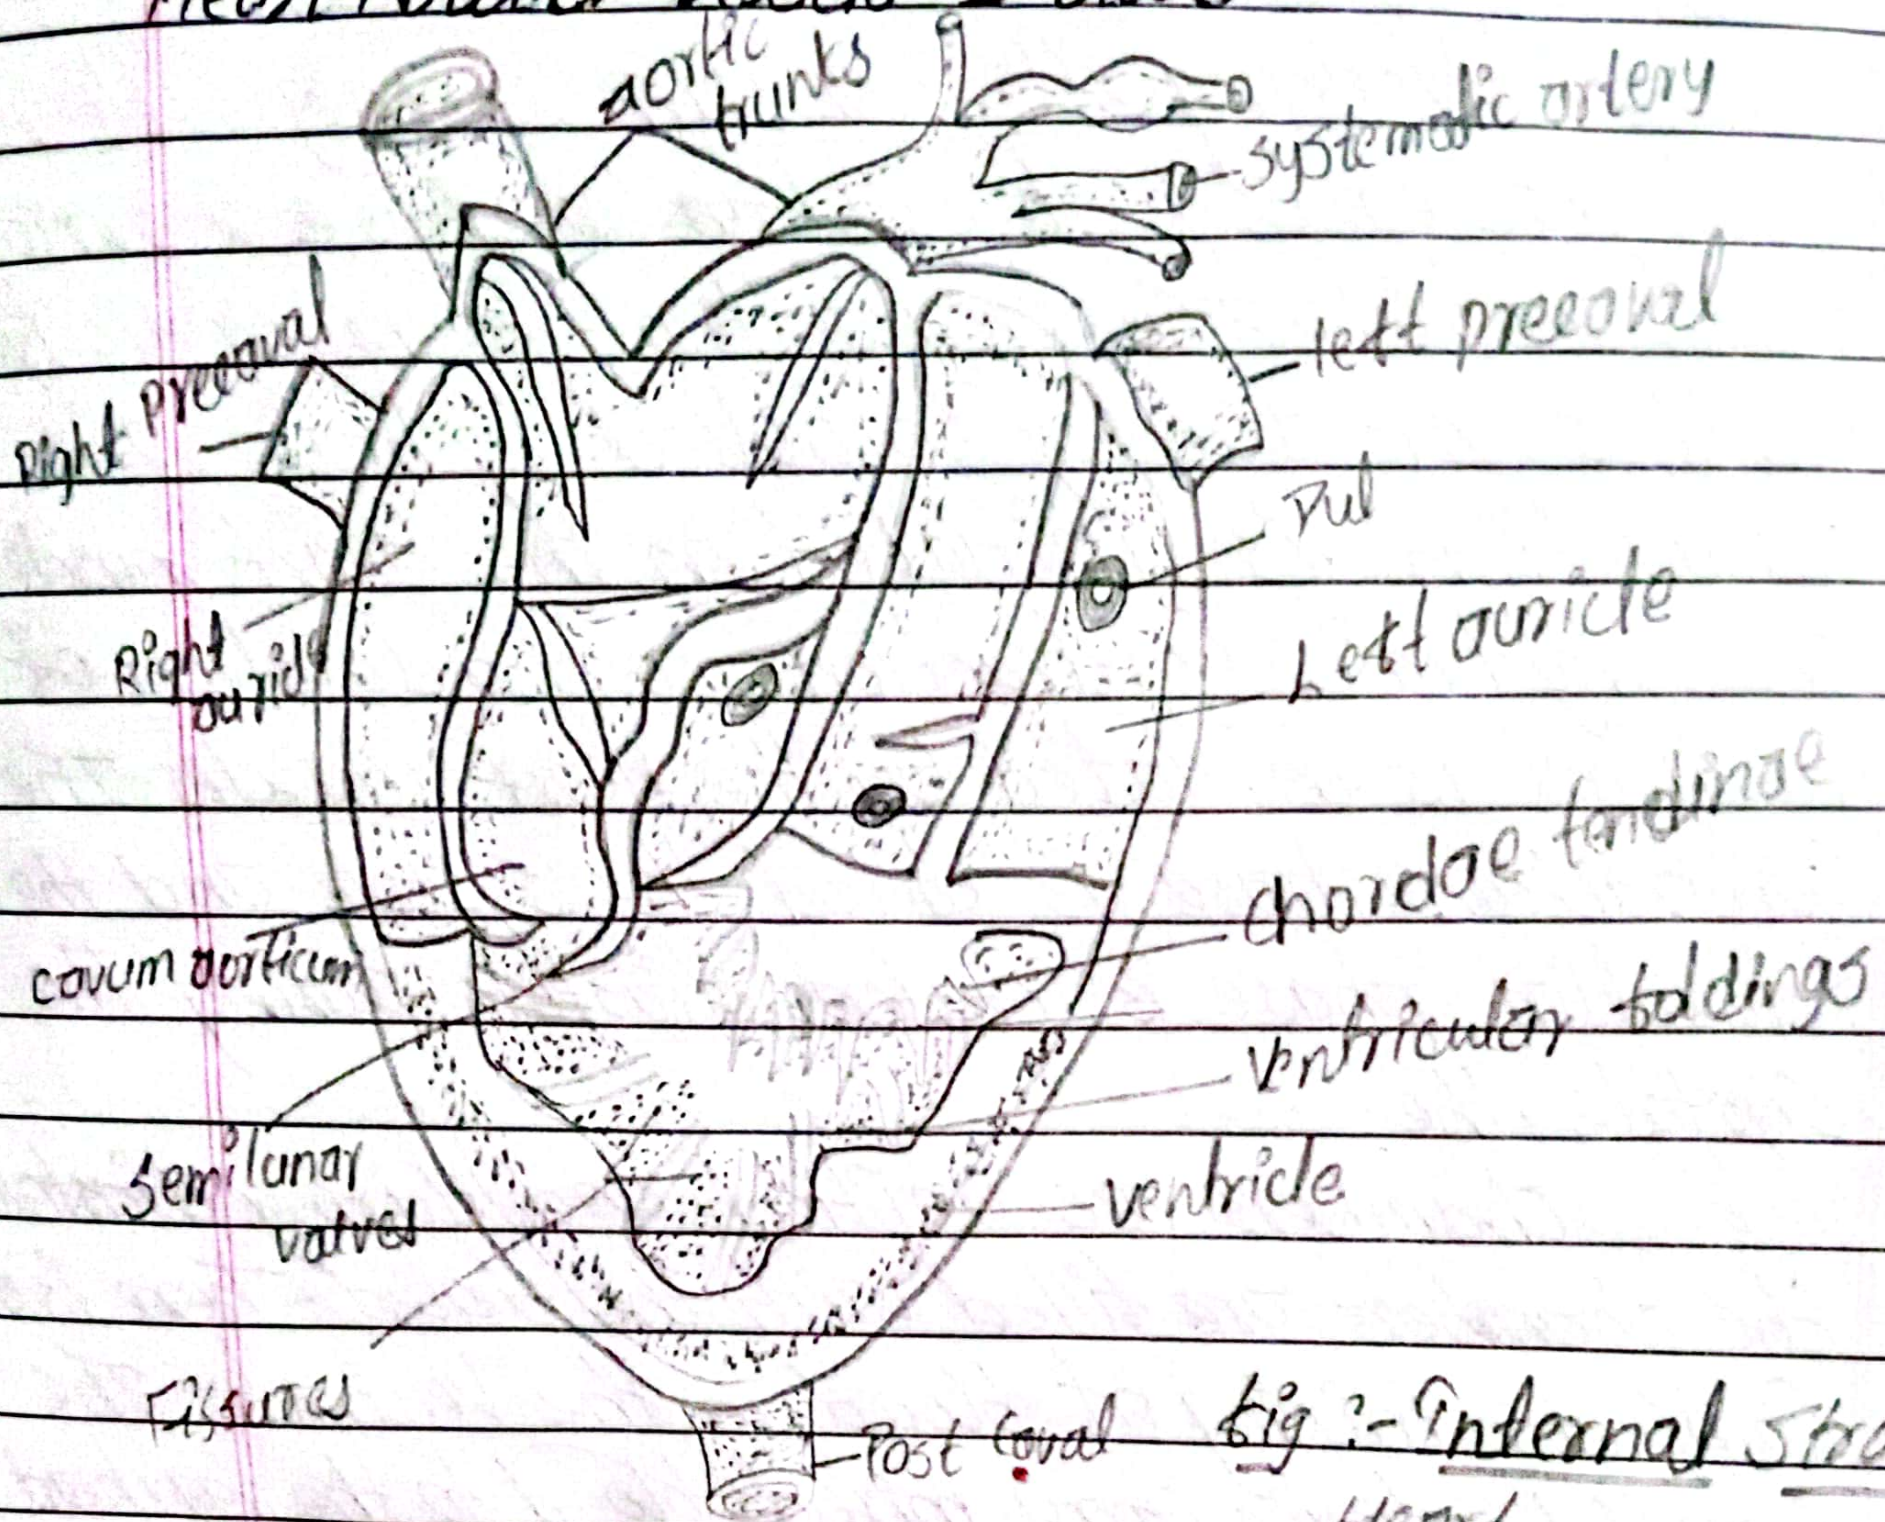 aortic
trunks
systematic artery
Right precaval
left precaval
Pul
Right
auricle
Left auricle
chordae tendinae
cavum aorticum
ventricular foldings
semilunar
valves
ventricle
Fissures
Post Caval
fig :- Internal
Heart